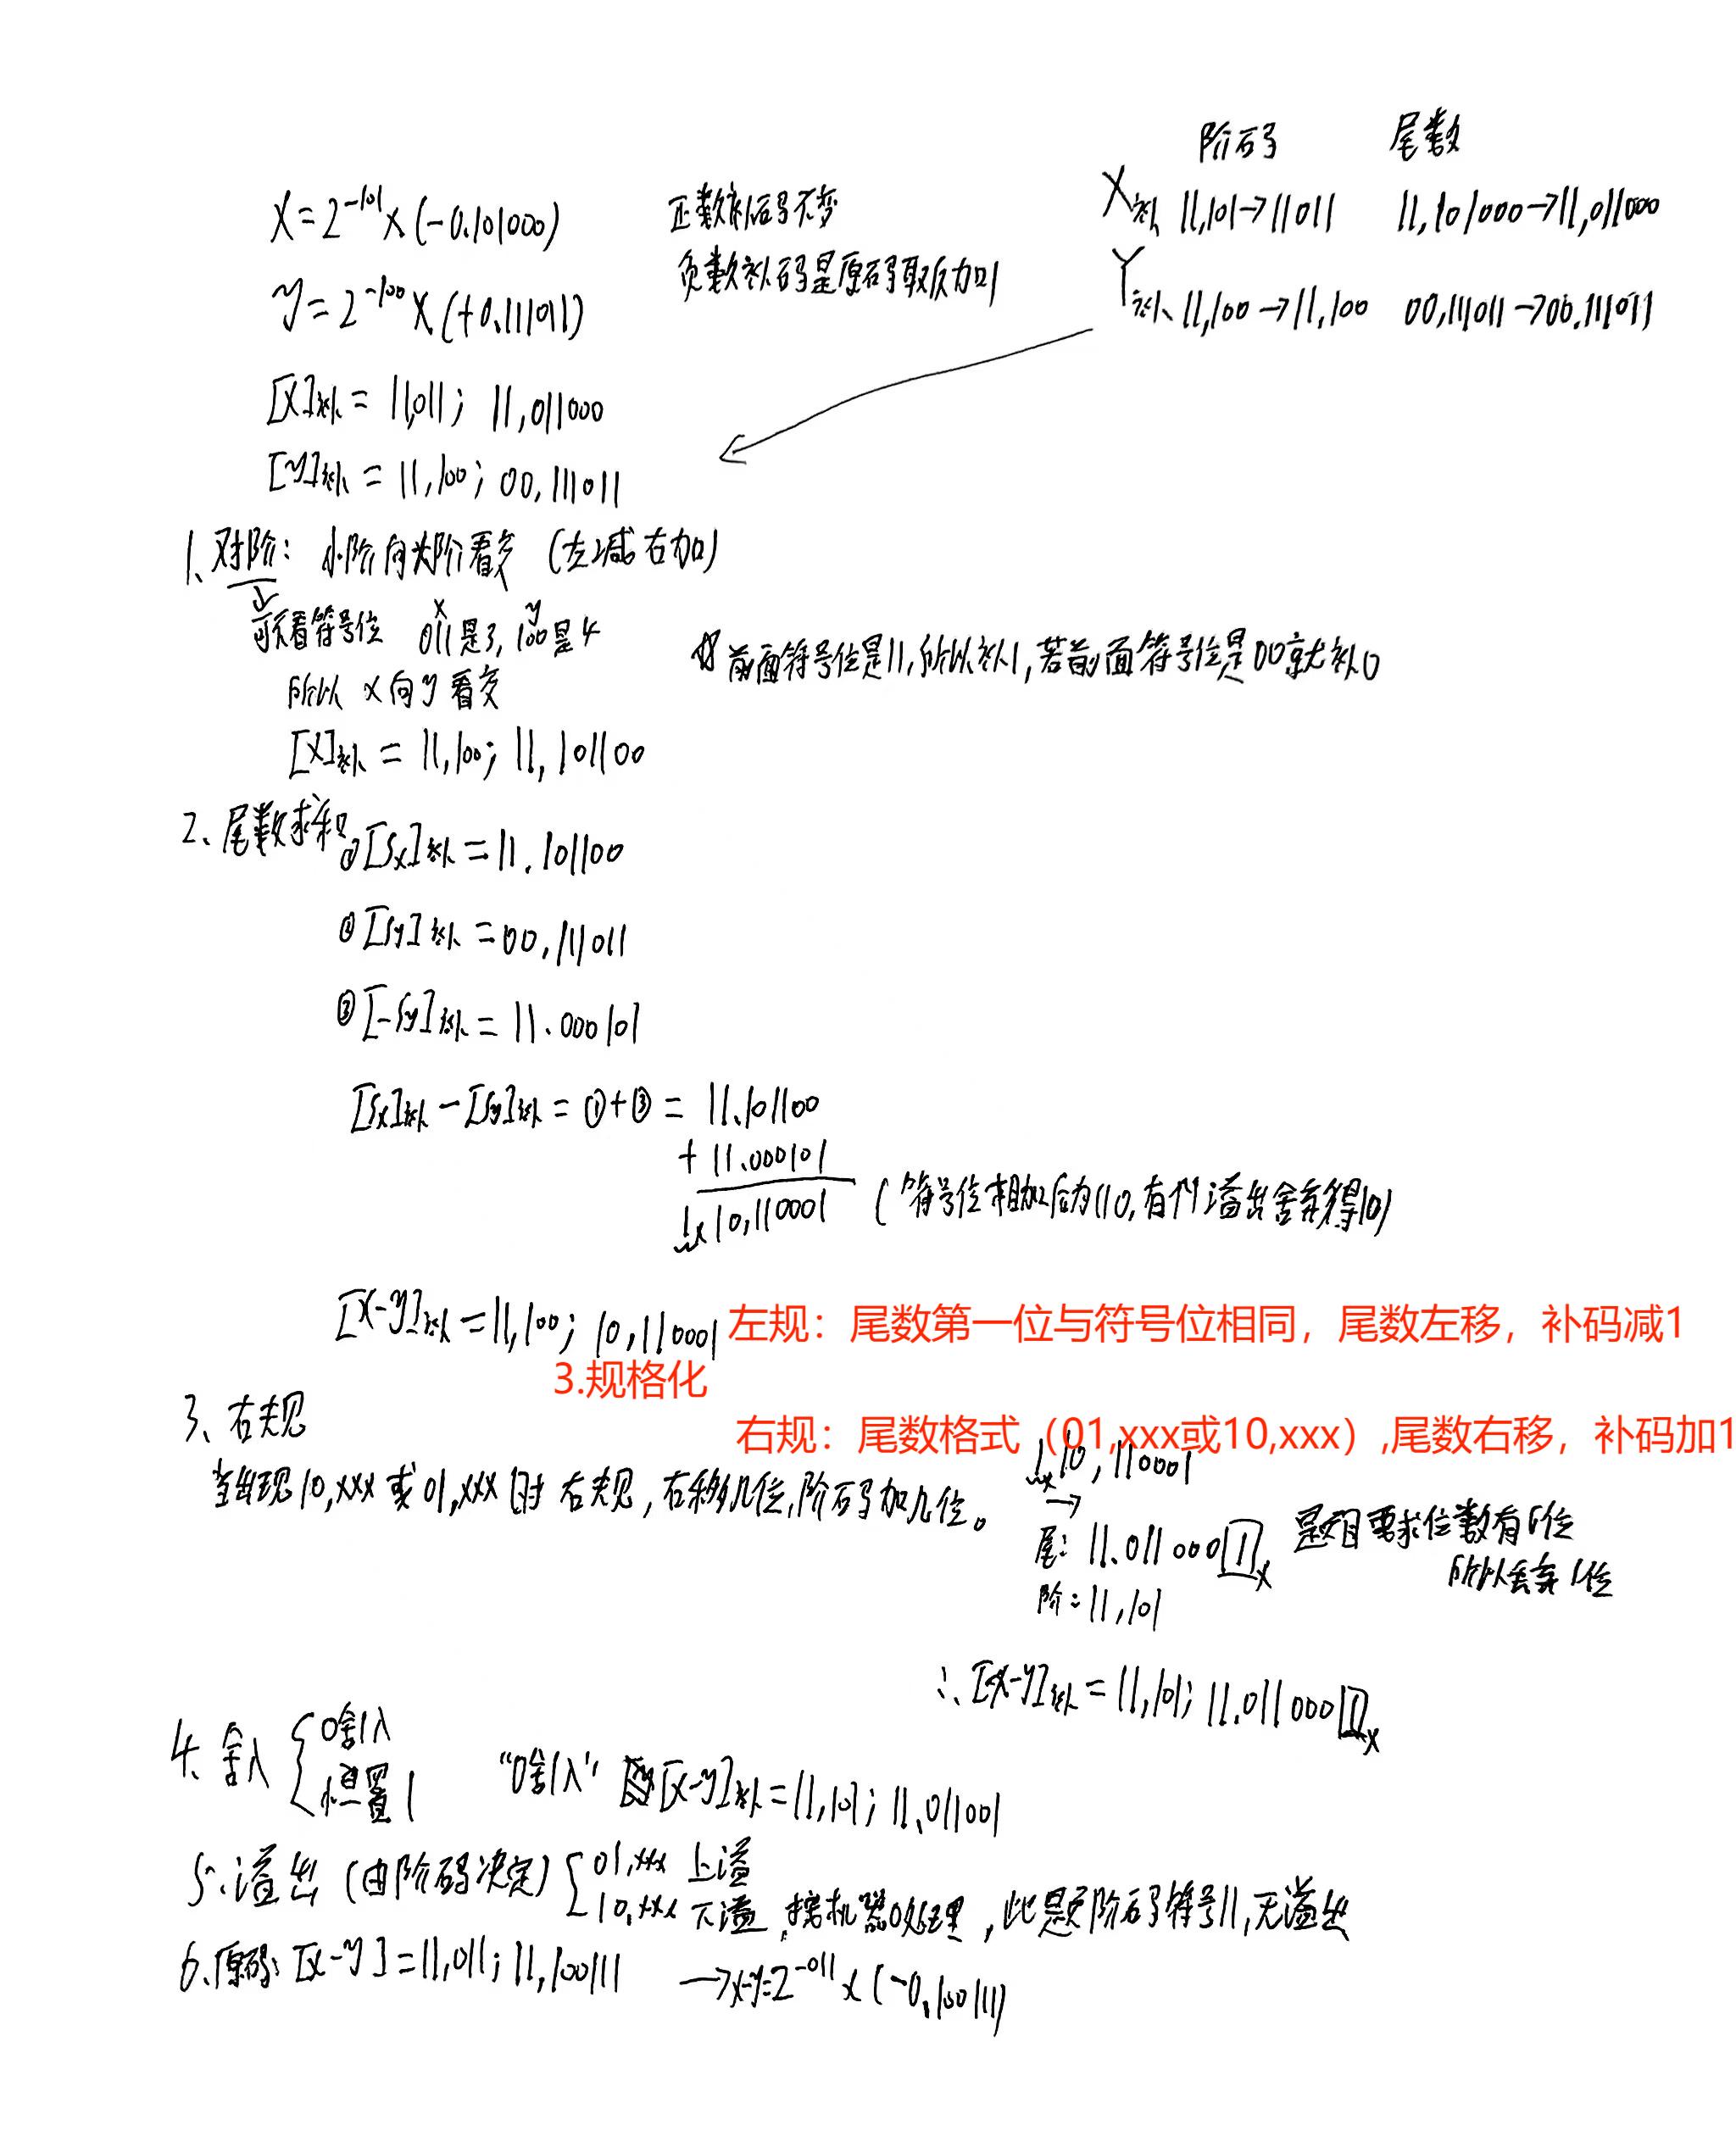 阶码 尾数
x=2^-101×(-0.101000) 正数补码不变 X补 11,101→11011 11,101000→11,011000
y=2^-100×(+0.111011) 负数补码是原码取反加1 Y补 11,100→11,100 00,111011→00.111011
[x]补=11,011; 11,011000
[y]补=11,100; 00,111011
1、对阶: 小阶向大阶看齐 (左减右加)
可不看符号位 x 011是3, y 100是4
前面符号位是11,所以补1,若前面符号位是00就补0
所以 x向y看齐
[x]补=11,100; 11,101100
2、尾数求和 ①[Sx]补=11.101100
②[Sy]补=00,111011
③[-Sy]补=11.000101
[Sx]补-[Sy]补=①+③= 11.101100
+ 11.000101
1× 10,110001 (符号位相加后为110,有1个溢出舍弃得10)
[x-y]补=11,100; 10,110001 左规：尾数第一位与符号位相同，尾数左移，补码减1
3.规格化
3、右规
右规：尾数格式（01,xxx或10,xxx）,尾数右移，补码加1
当出现10,xxx或01,xxx时 右规,右移几位,阶码加几位。
1× 10,110001
→
尾: 11.011000 1 × 题目要求位数有6位
所以丢弃1位
阶: 11,101
∴[x-y]补=11,101; 11.011000 1 ×
4、舍入 { 0舍1入
恒置1
"0舍1入" [x-y]补=11,101; 11.011001
5.溢出 (由阶码决定) { 01,xxx 上溢
10,xxx 下溢,按机器0处理,此题阶码符号11,无溢出
6、原码: [x-y]=11,011; 11,100111 →x-y=2^-011×(-0.100111)